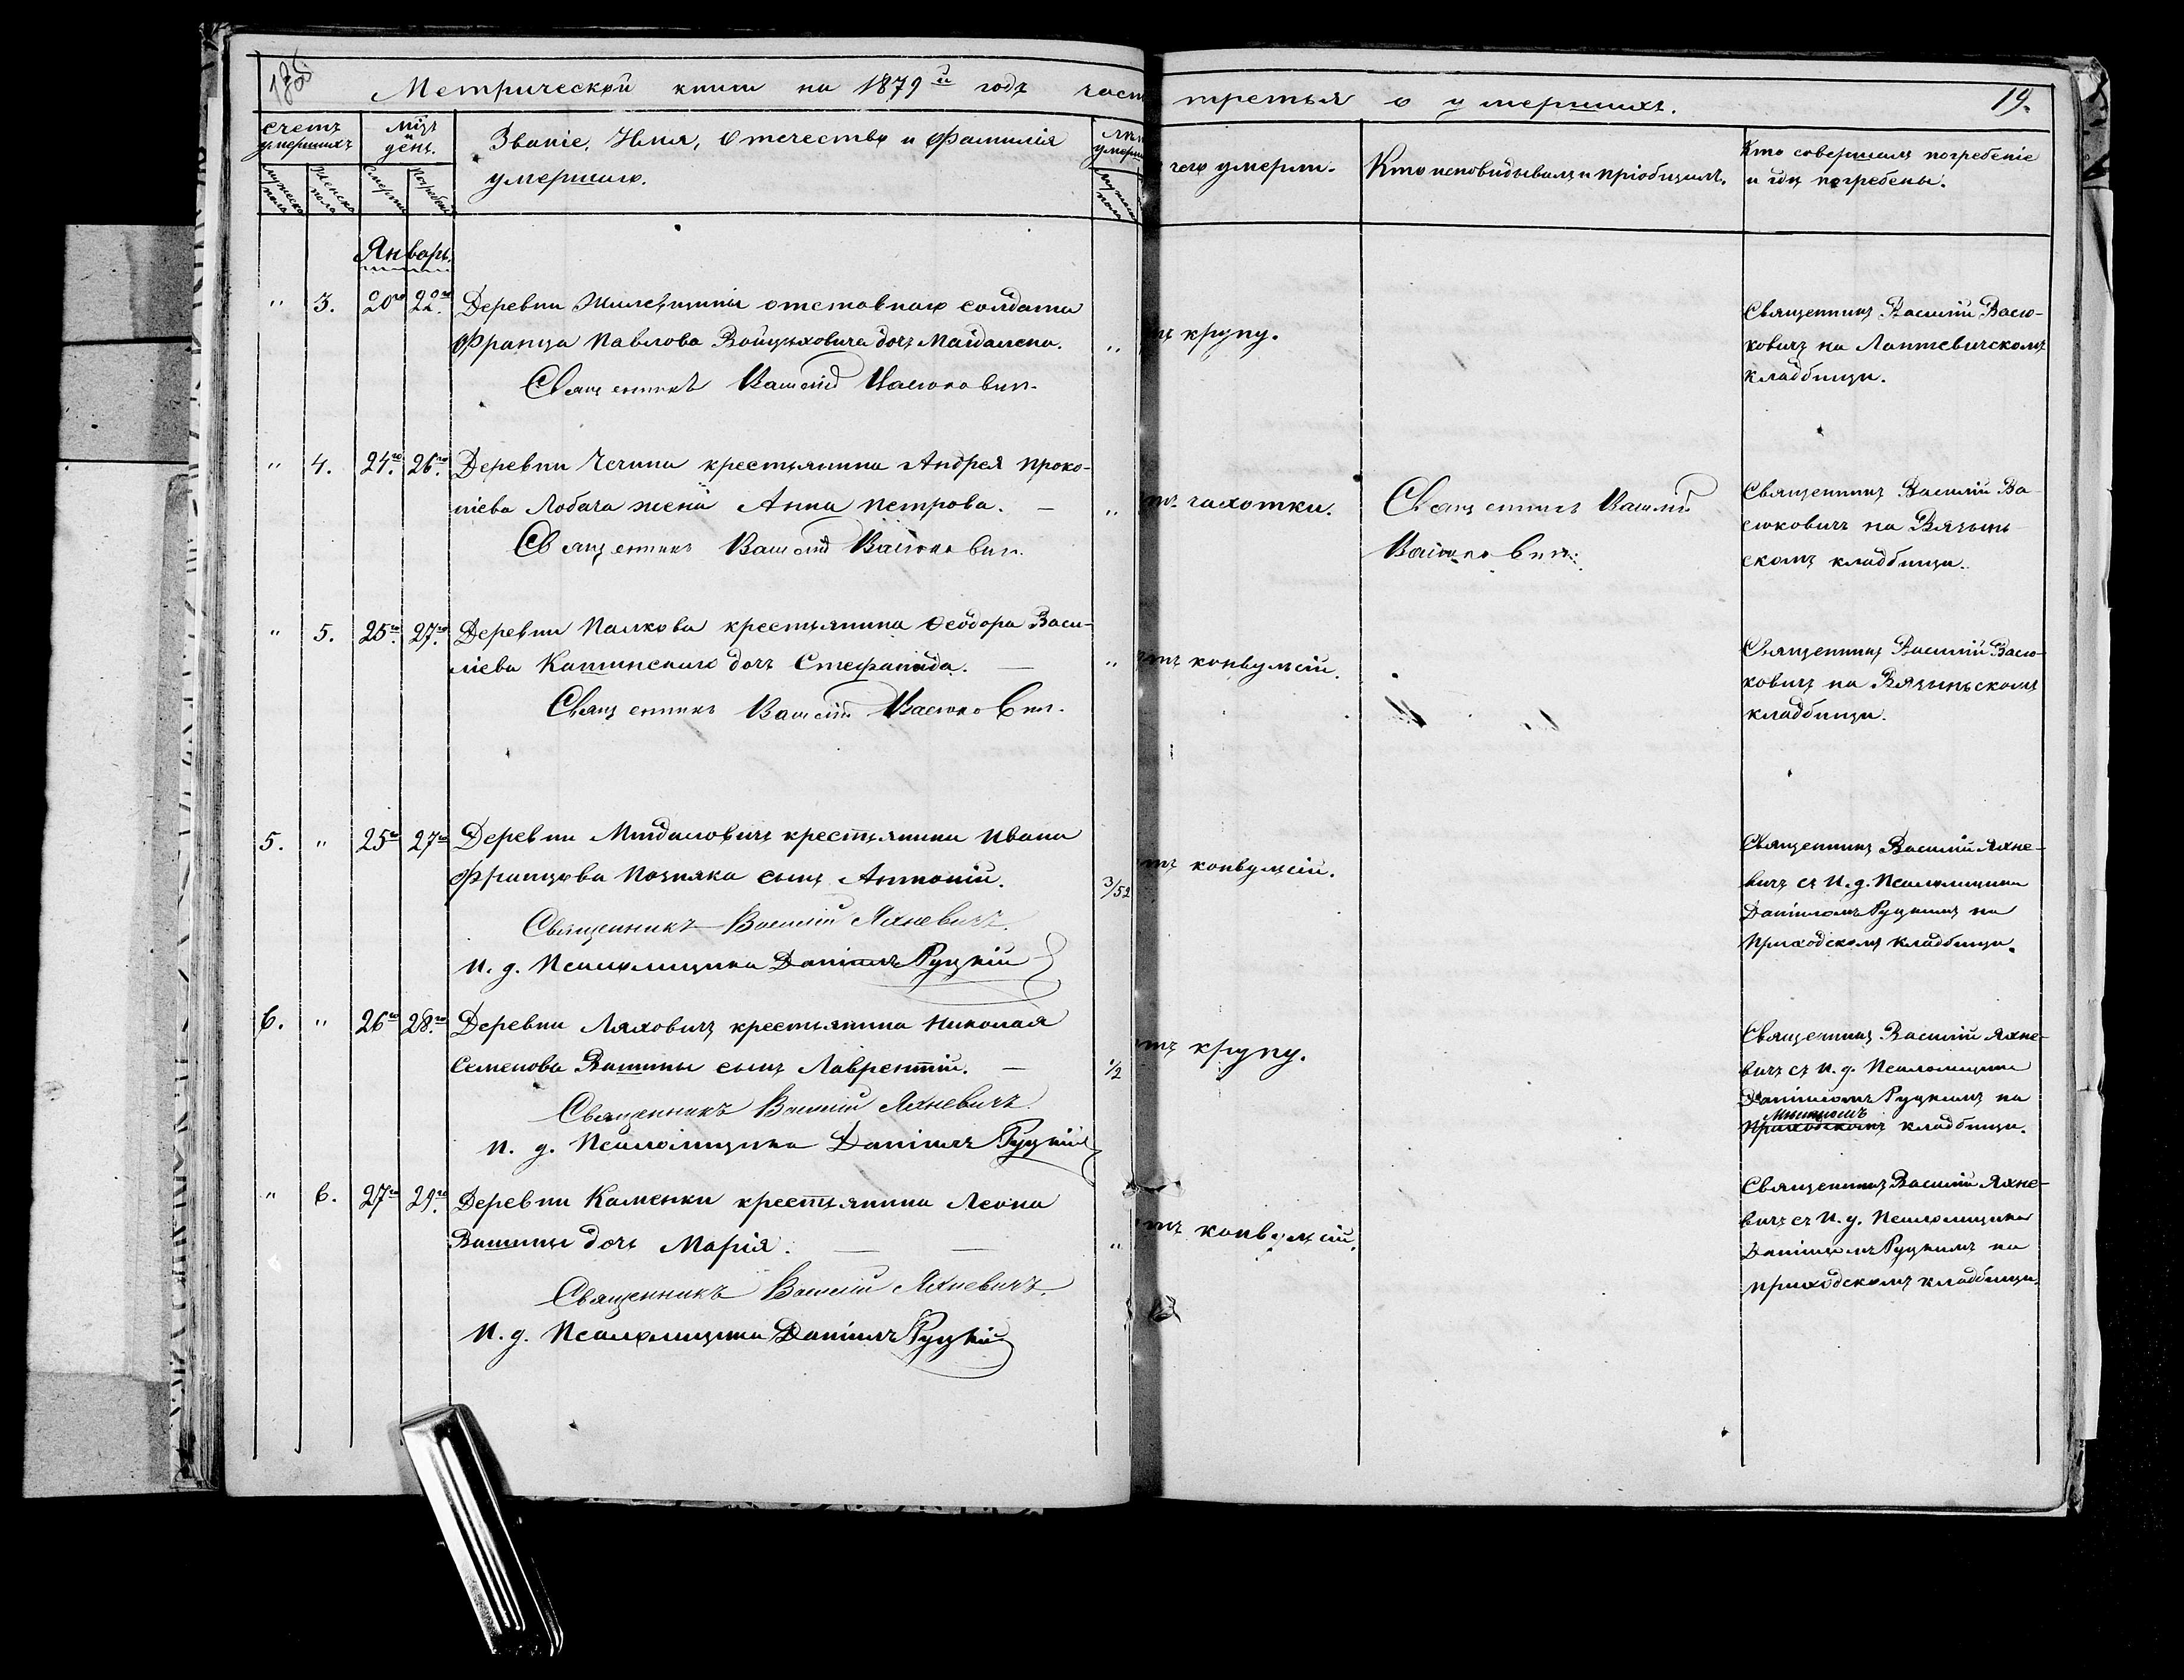 Метрической книги на 1879й годъ часть третья о умершихъ. 19.
Счетъ умершихъ
Мцъ и день.
Званіе, Имя, Отечество и Фамилія
умершаго.
чего умерли.
Кто исповѣдывалъ и пріобщилъ.
Кто совершалъ погребеніе
и гдѣ погребены.
мужеска пола
женска пола
Смерти
Погребен
Январь.
" 3. 20го 22го Деревни отставного солдата
Франца Павлова Войцѣховича дочь Магдалена. "
Священникъ Василій Васюковичъ.
крупу.
Священникъ Василій Васю-
ковичъ на Лаптевическомъ
кладбищи.
" 4. 24го 26го Деревни Чечина крестьянина Андрея Проко-
піева Лобача жена Анна Петрова. — "
Священникъ Василій Васюковичъ.
чахотки.
Священникъ Василій
Васюковичъ.
Священникъ Василій Ва-
сюковичъ на Вязынь-
скомъ кладбищи.
" 5. 25го 27го Деревни Палкова крестьянина Ѳеодора Васи-
ліева Катинскаго дочь Стефанида. — "
Священникъ Василій Васюковичъ.
отъ конвульсіи.
Священникъ Василій Васю-
ковичъ на Вязыньскомъ
кладбищи.
5. " 25го 27го Деревни крестьянина Ивана
Францова Позняка сынъ Антоній. 3/52
Священникъ Василій Яхневичъ.
И. д. Псаломщика Даніилъ Руцкій
отъ конвульсіи.
Священникъ Василій Яхне-
вичъ съ И. д. Псаломщика
Даніиломъ Руцкимъ на
Приходскомъ кладбищи.
6. " 26го 28го Деревни Ляховичъ крестьянина Николая
Семенова Вашины сынъ Лаврентій. — 1/2
Священникъ Василій Яхневичъ.
И. д. Псаломщика Даніилъ Руцкій
отъ крупу.
Священникъ Василій Яхне-
вичъ съ И. д. Псаломщика
Даніиломъ Руцкимъ на
Приходскомъ кладбищи.
" 6. 27го 29го Деревни Каменки крестьянина Леона
Вашины дочь Марія. — — "
Священникъ Василій Яхневичъ.
И. д. Псаломщика Даніилъ Руцкій
отъ конвульсіи.
Священникъ Василій Яхне-
вичъ съ И. д. Псаломщика
Даніиломъ Руцкимъ на
приходскомъ кладбищи.